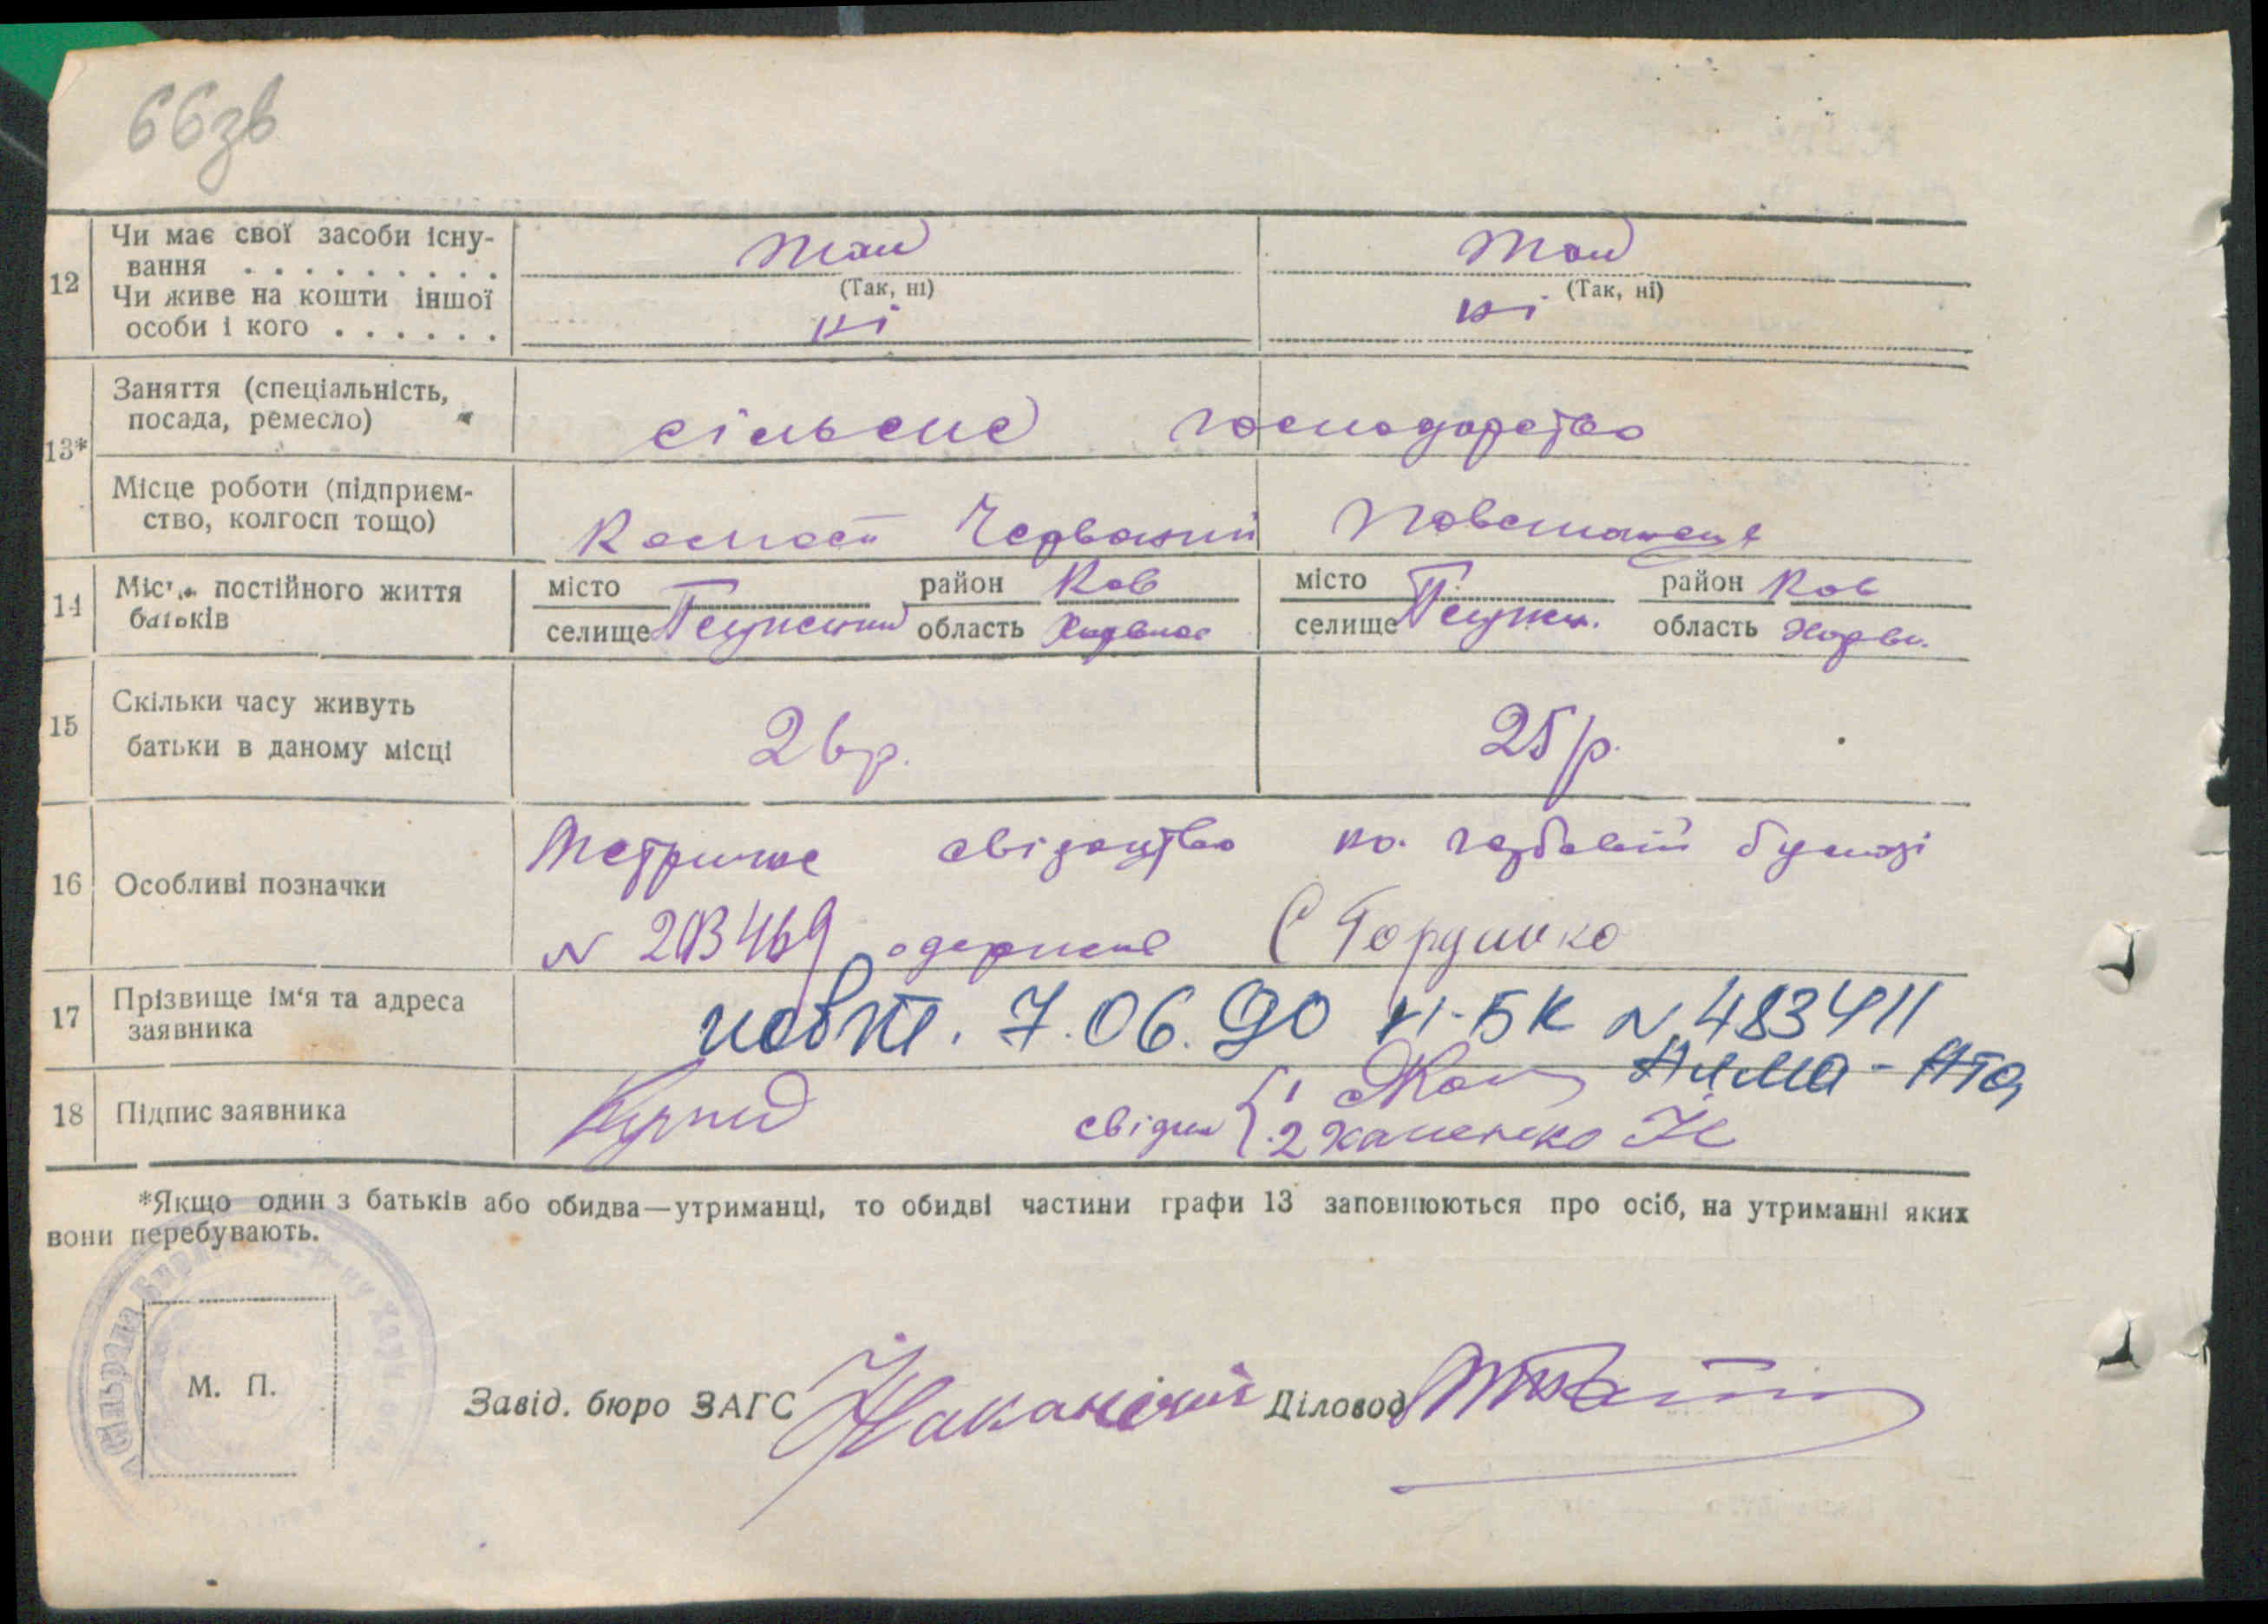 66зв
12 Чи має свої засоби існу-
вання . . . . . . . . . так так
(Так, ні) (Так, ні)
Чи живе на кошти іншої
особи і кого . . . . . . ні ні
13* Заняття (спеціальність,
посада, ремесло) сільське господарство
Місце роботи (підприєм-
ство, колгосп тощо) Колгосп Червоний Повстанець
14 Місце постійного життя місто район Ков місто район Ков
батьків селище область селище область Харкв.
15 Скільки часу живуть
батьки в даному місці 26р. 25 р.
16 Особливі позначки Метричне свідоцтво на гербовій бумазі
N 203469 одержав
17 Прізвище ім'я та адреса
заявника повт. 7.06.90 II-БК N 483411
Алма-Ата
18 Підпис заявника свідки { 1
2
*Якщо один з батьків або обидва—утриманці, то обидві частини графи 13 заповнюються про осіб, на утриманні яких
вони перебувають.
М. П.
Завід. бюро ЗАГС Діловод